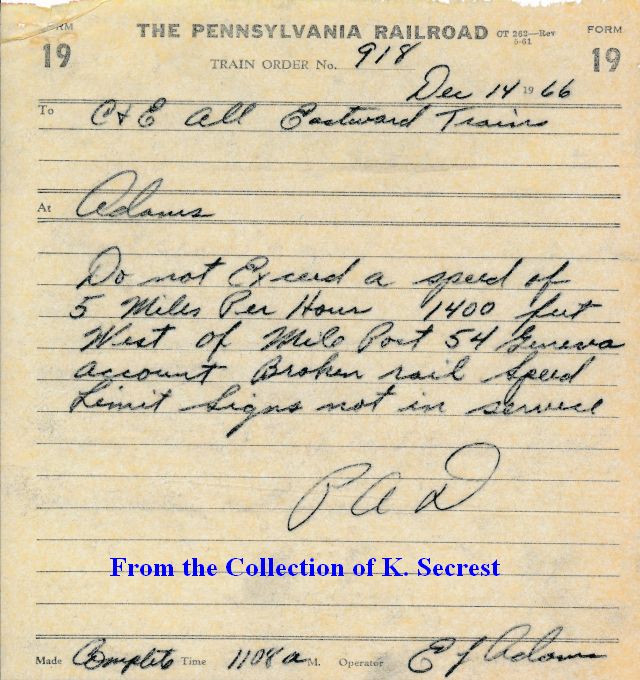 FORM 19
THE PENNSYLVANIA RAILROAD CT 262—Rev 5-61
FORM 19
TRAIN ORDER No. 918
Dec 14 1966
To C&E All Eastward Trains
At Adams
Do not Exceed a speed of
5 Miles Per Hour 1400 feet
West of Mile Post 54 Geneva
account Broken rail Speed
Limit Signs not in service
P A D
From the Collection of K. Secrest
Made Complete Time 1108 a M. Operator E J Adams